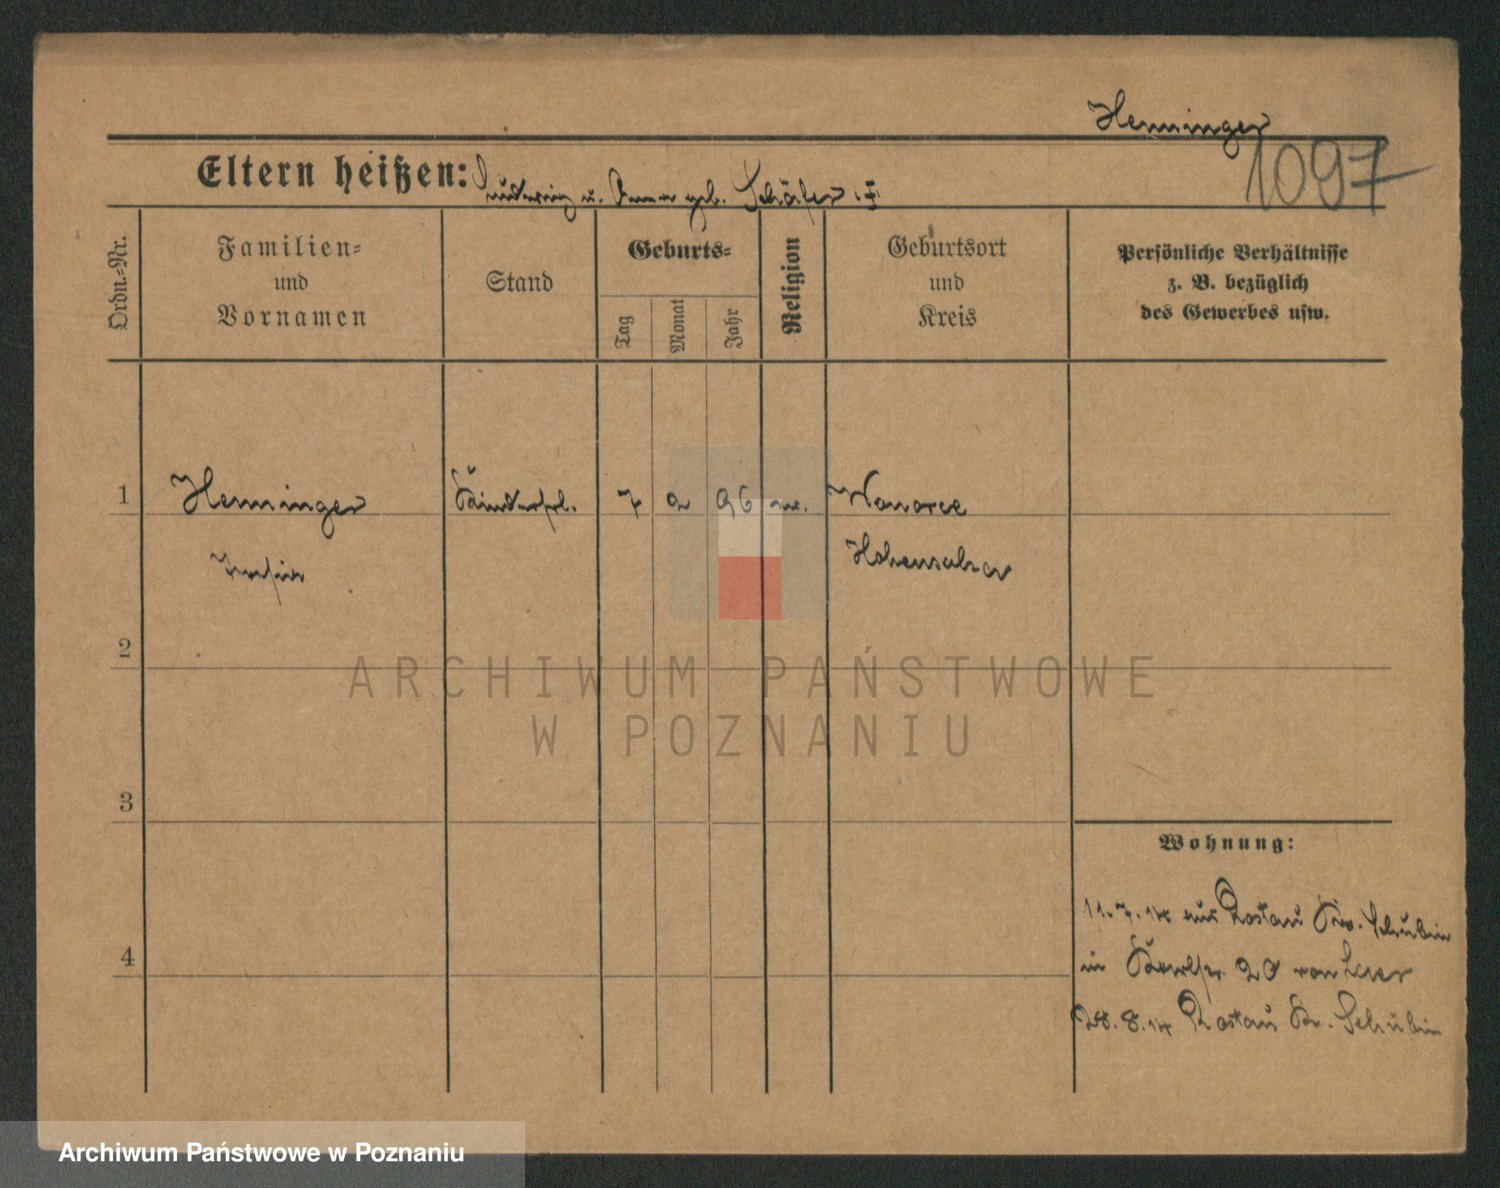 Henninger
1097
Eltern heißen: Ludwig u. Anna geb. Schäfer
Ordn.-Nr.
Familien-
und
Vornamen
Stand
Geburts-
Tag
Monat
Jahr
Religion
Geburtsort
und
Kreis
Persönliche Verhältnisse
z. B. bezüglich
des Gewerbes usw.
1 Henninger Kinderfrl. 7 2 96 Wonorce
Hohensalza
2
3
4
Wohnung:
11.7.14 aus Rostau Kr. Schubin
in 20 von
28.8.14 Rostau Kr. Schubin
ARCHIWUM PAŃSTWOWE
W POZNANIU
Archiwum Państwowe w Poznaniu